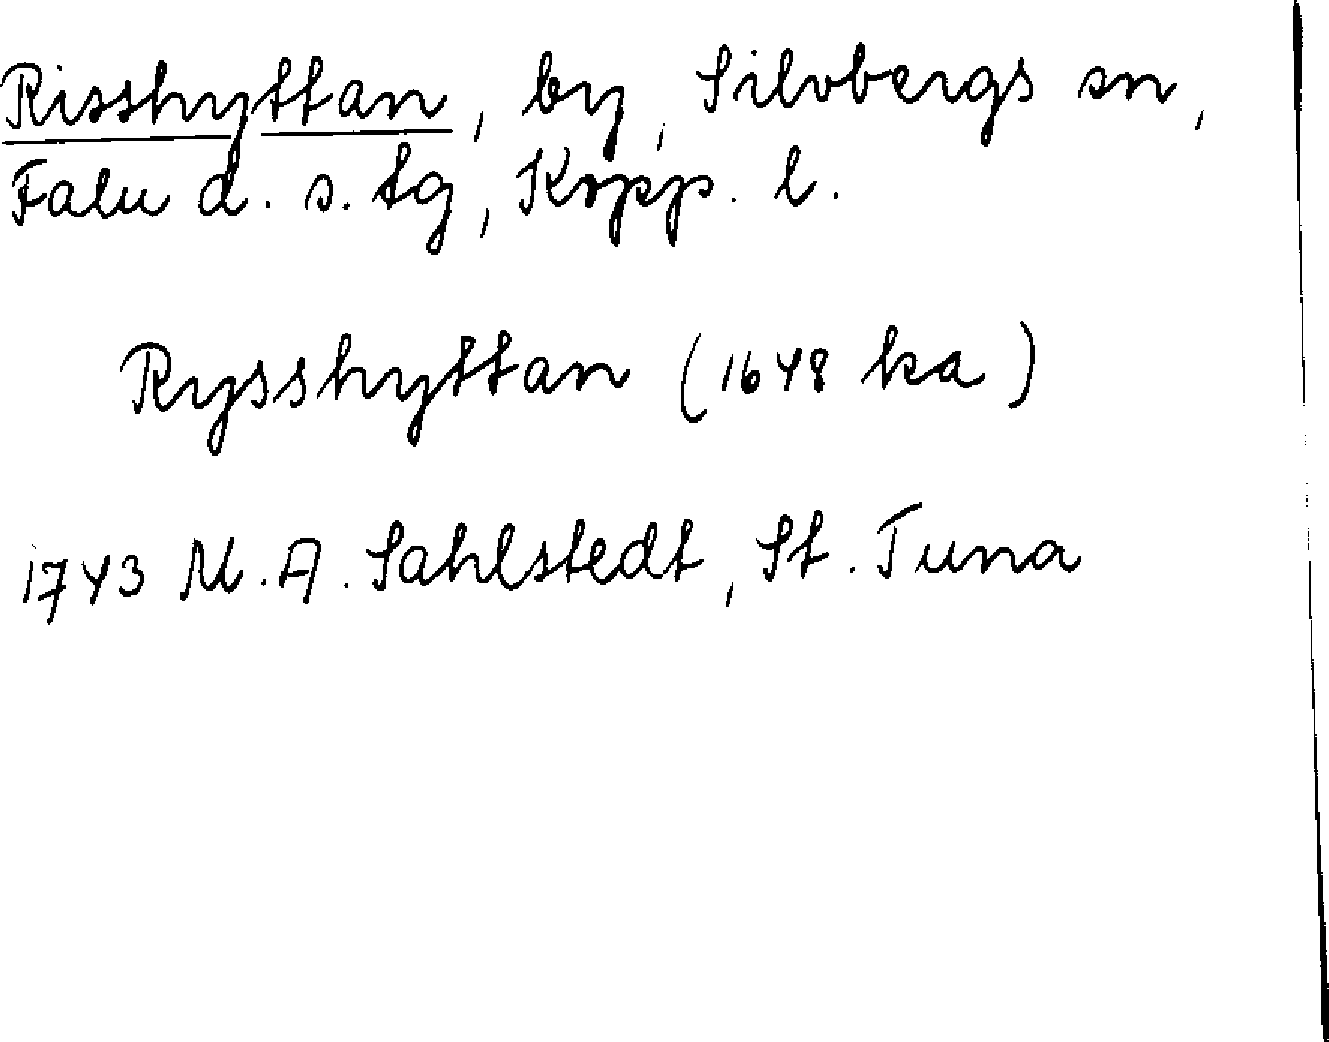 Risshyttan, by, Silvbergs sn,
Falu d. s. tg, Kopp. l.
Rysshyttan (1648 ka)
1743 M. A. Sahlstedt, St. Tuna